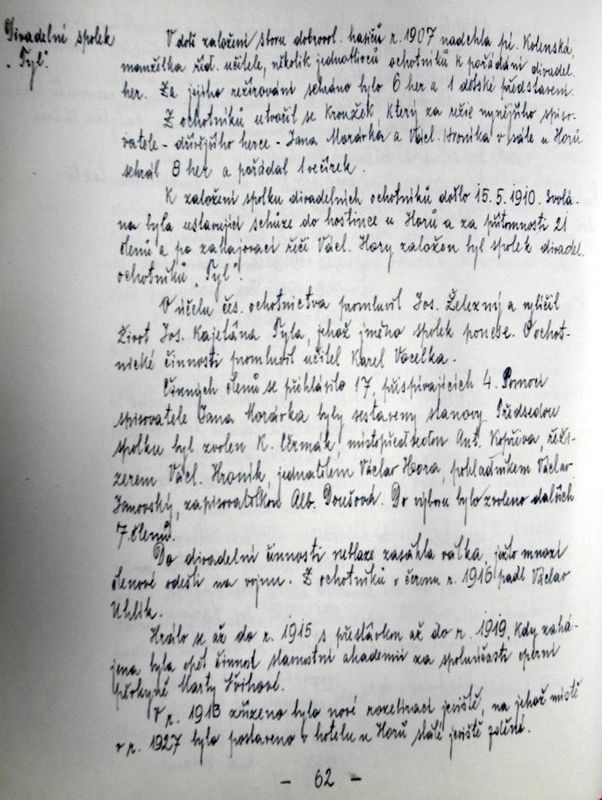 Divadelní spolek
„Tyl".
V době založení sboru dobrovol. hasičů r. 1907 nadchla pí. Kolenská,
manželka říd. učitele, několik jednotlivců ochotníků k pořádání divadel.
her. Za jejího režírování sehráno bylo 6 her a 1 dětské představení.
Z ochotníků utvořil se kroužek, který za režie nynějšího spiso-
vatele - dřívějšího herce - Jana Morávka a Václ. Hroníka v sále u Horů
sehrál 8 her a pořádal 1 večírek.
K založení spolku divadelních ochotníků došlo 15.5.1910. Svolá-
na byla ustavující schůze do hostince u Horů a za přítomnosti 21
členů a po zahajovací řeči Václ. Hory založen byl spolek divadel.
ochotníků „Tyl".
O účelu čes. ochotnictva promluvil Jos. Železný a vylíčil
život Jos. Kajetána Tyla, jehož jméno spolek ponese. O ochot-
nické činnosti promluvil učitel Karel Vacelka.
Činných členů se přihlásilo 17, přispívajících 4. Pomocí
spisovatele Jana Morávka byly sestaveny stanovy. Předsedou
spolku byl zvolen K. Čermák, místopředsedou Ant. Kopřiva, reži-
zerem Václ. Hroník, jednatelem Václav Hora, pokladníkem Václav
Janovský, zapisovatelkou Alb. Doušová. Do výboru bylo zvoleno dalších
7 členů.
Do divadelní činnosti neblaze zasáhla válka, ježto mnozí
členové odešli na vojnu. Z ochotníků v červnu r. 1916 padl Václav
Uhlík.
Hrálo se až do r. 1915 s přestávkou až do r. 1919, kdy zahá-
jena byla opět činnost slavnostní akademií za spoluúčasti operní
pěvkyně Marty
V r. 1913 zřízeno bylo nové rozebírací jeviště, na jehož místě
v r. 1927 bylo postaveno v hotelu u Horů stálé jeviště
- 62 -